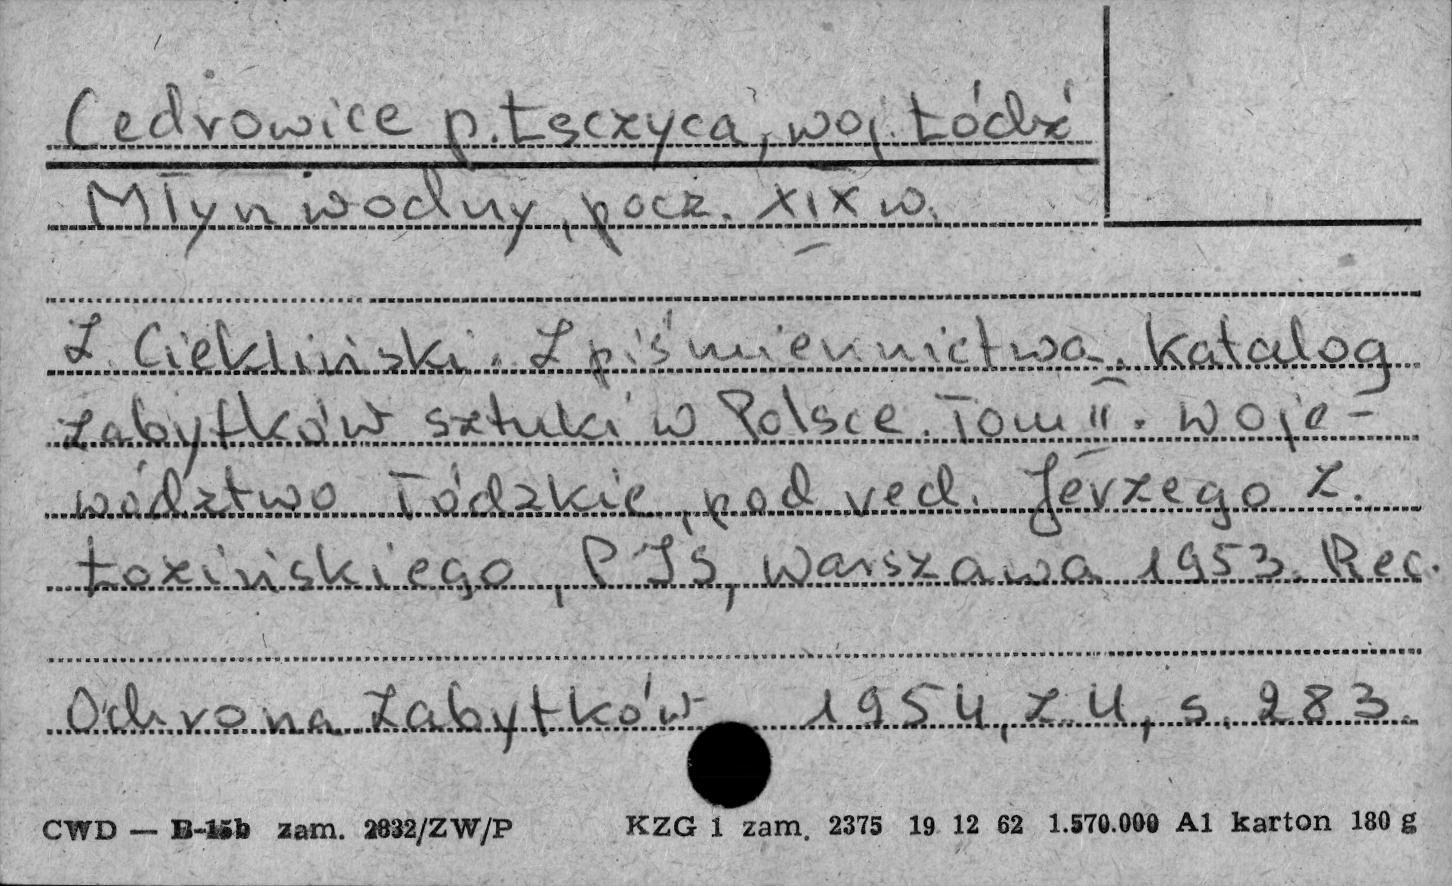 Cedrowice p. Łęczyca, woj. Łódź
Młyn wodny, pocz. XIX w.
Z. Ciekliński. Z piśmiennictwa. Katalog
zabytków sztuki w Polsce. Tom II. Woje-
wództwo łódzkie, pod red. Jerzego Z.
Łozińskiego, PIS, Warszawa 1953. Rec.
Ochrona Zabytków 1954, z. 4, s. 283.
CWD — B-15b zam. 2832/ZW/P KZG 1 zam. 2375 19 12 62 1.570.000 A1 karton 180 g